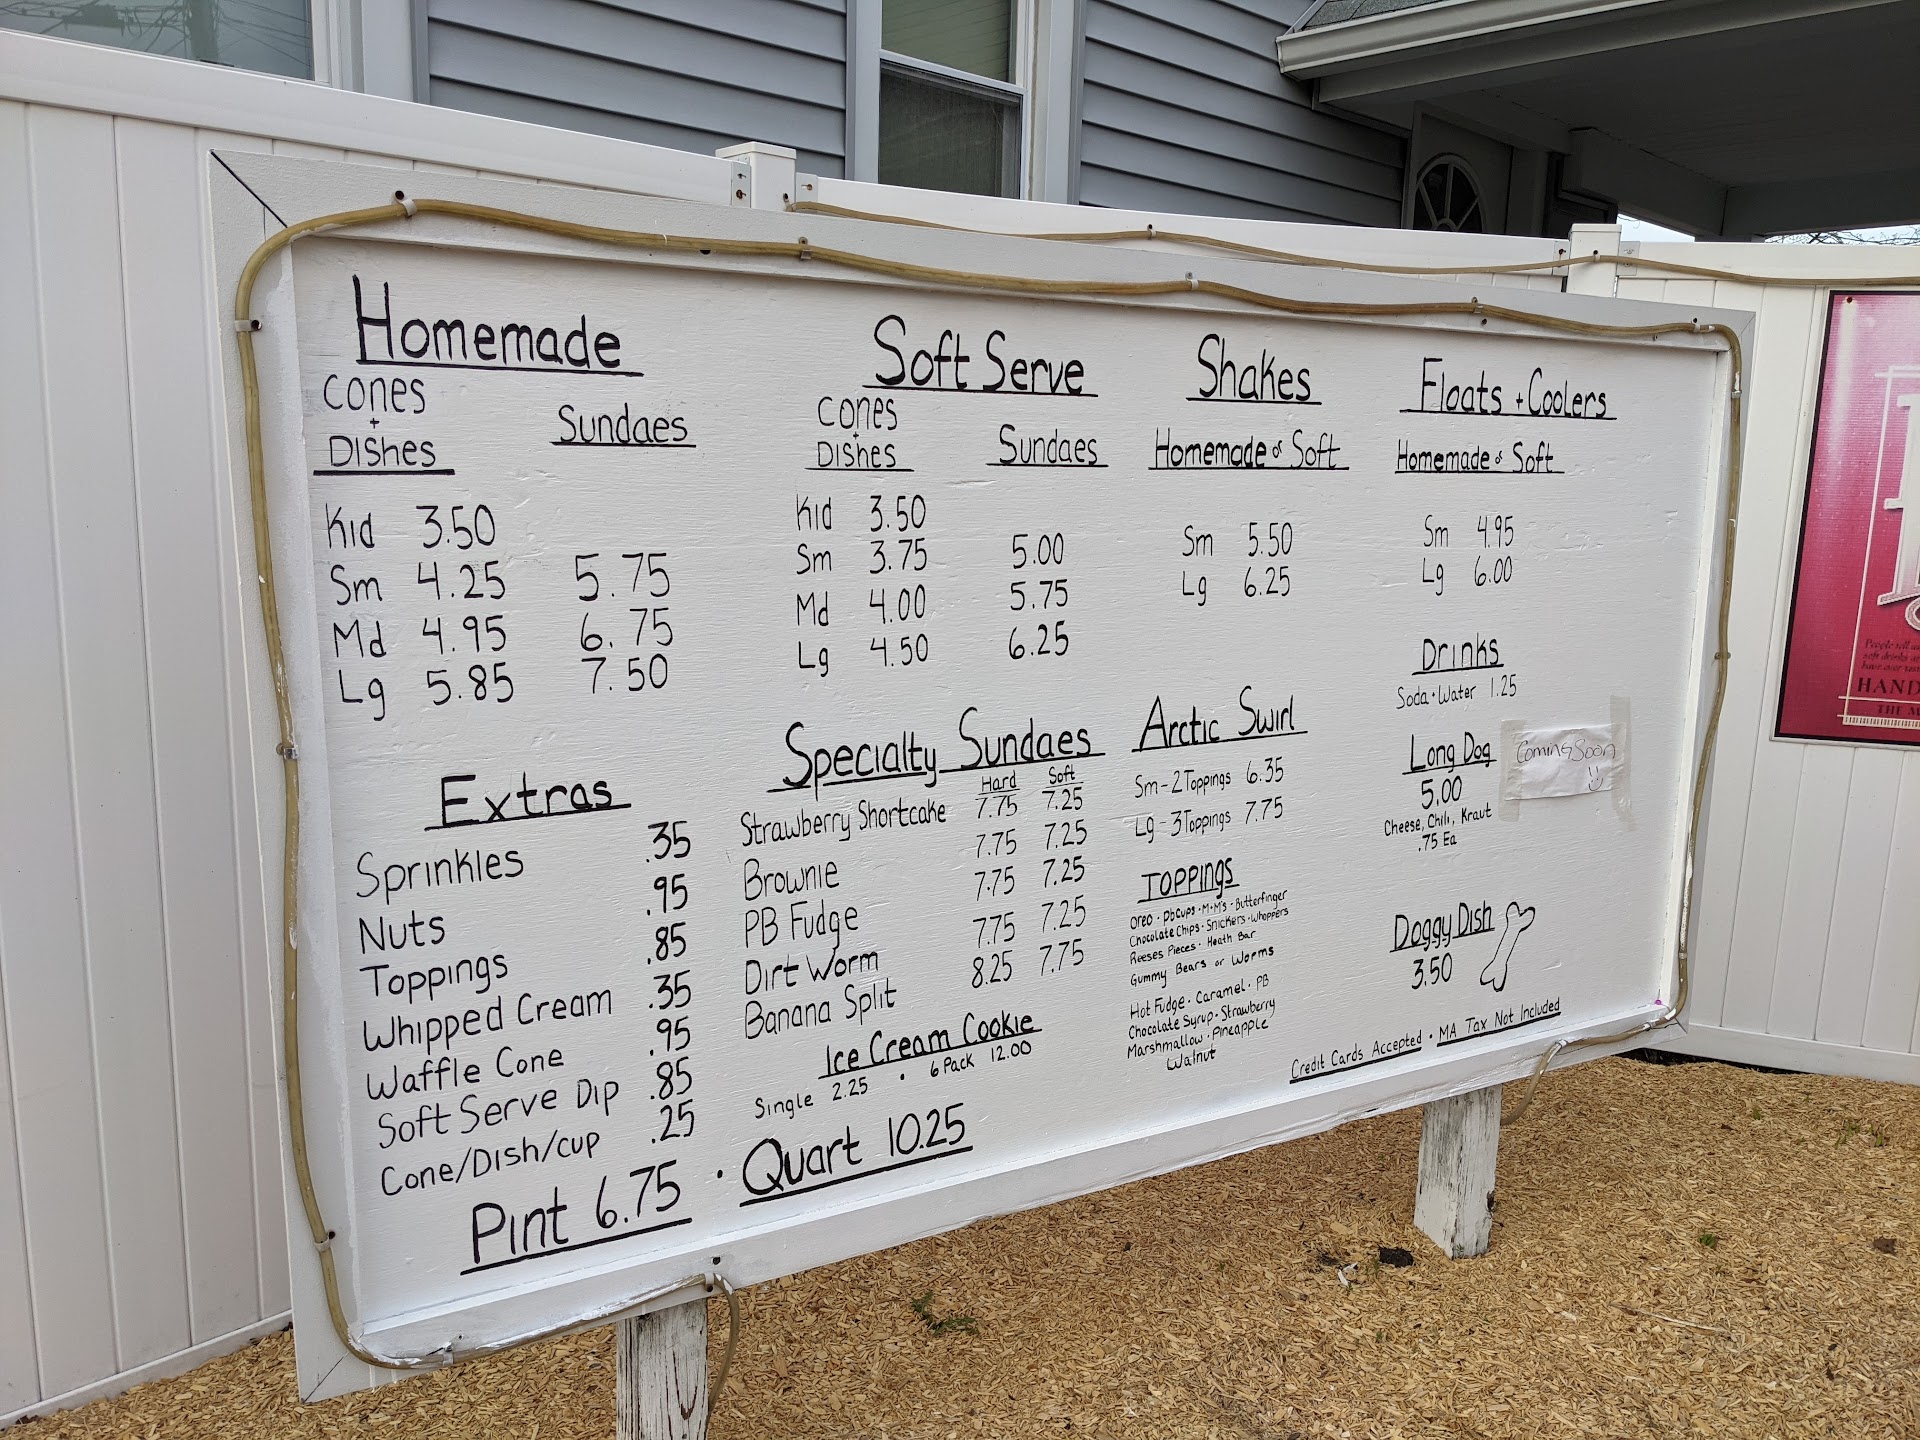 Homemade
Cones
+
Dishes
Sundaes
Kid 3.50
Sm 4.25 5.75
Md 4.95 6.75
Lg 5.85 7.50
Extras
Sprinkles .35
Nuts .95
Toppings .85
Whipped Cream .35
Waffle Cone .95
Soft Serve Dip .85
Cone/Dish/cup .25
Pint 6.75 · Quart 10.25
Soft Serve
Cones
+
Dishes
Sundaes
Kid 3.50
Sm 3.75 5.00
Md 4.00 5.75
Lg 4.50 6.25
Specialty Sundaes
Hard Soft
Strawberry Shortcake 7.75 7.25
Brownie 7.75 7.25
PB Fudge 7.75 7.25
Dirt Worm 7.75 7.25
Banana Split 8.25 7.75
Ice Cream Cookie
Single 2.25 · 6 Pack 12.00
Shakes
Homemade or Soft
Sm 5.50
Lg 6.25
Arctic Swirl
Sm - 2 Toppings 6.35
Lg - 3 Toppings 7.75
Toppings
Oreo · Pb Cups · M+M's · Butterfinger
Chocolate Chips · Snickers · Whoppers
Reeses Pieces · Heath Bar
Gummy Bears or Worms
Hot Fudge · Caramel · PB
Chocolate Syrup · Strawberry
Marshmallow · Pineapple
Walnut
Floats + Coolers
Homemade or Soft
Sm 4.95
Lg 6.00
Drinks
Soda · Water 1.25
Long Dog
5.00
Coming Soon
Cheese, Chili, Kraut
.75 Ea
Doggy Dish
3.50
Credit Cards Accepted · MA Tax Not Included
HAND